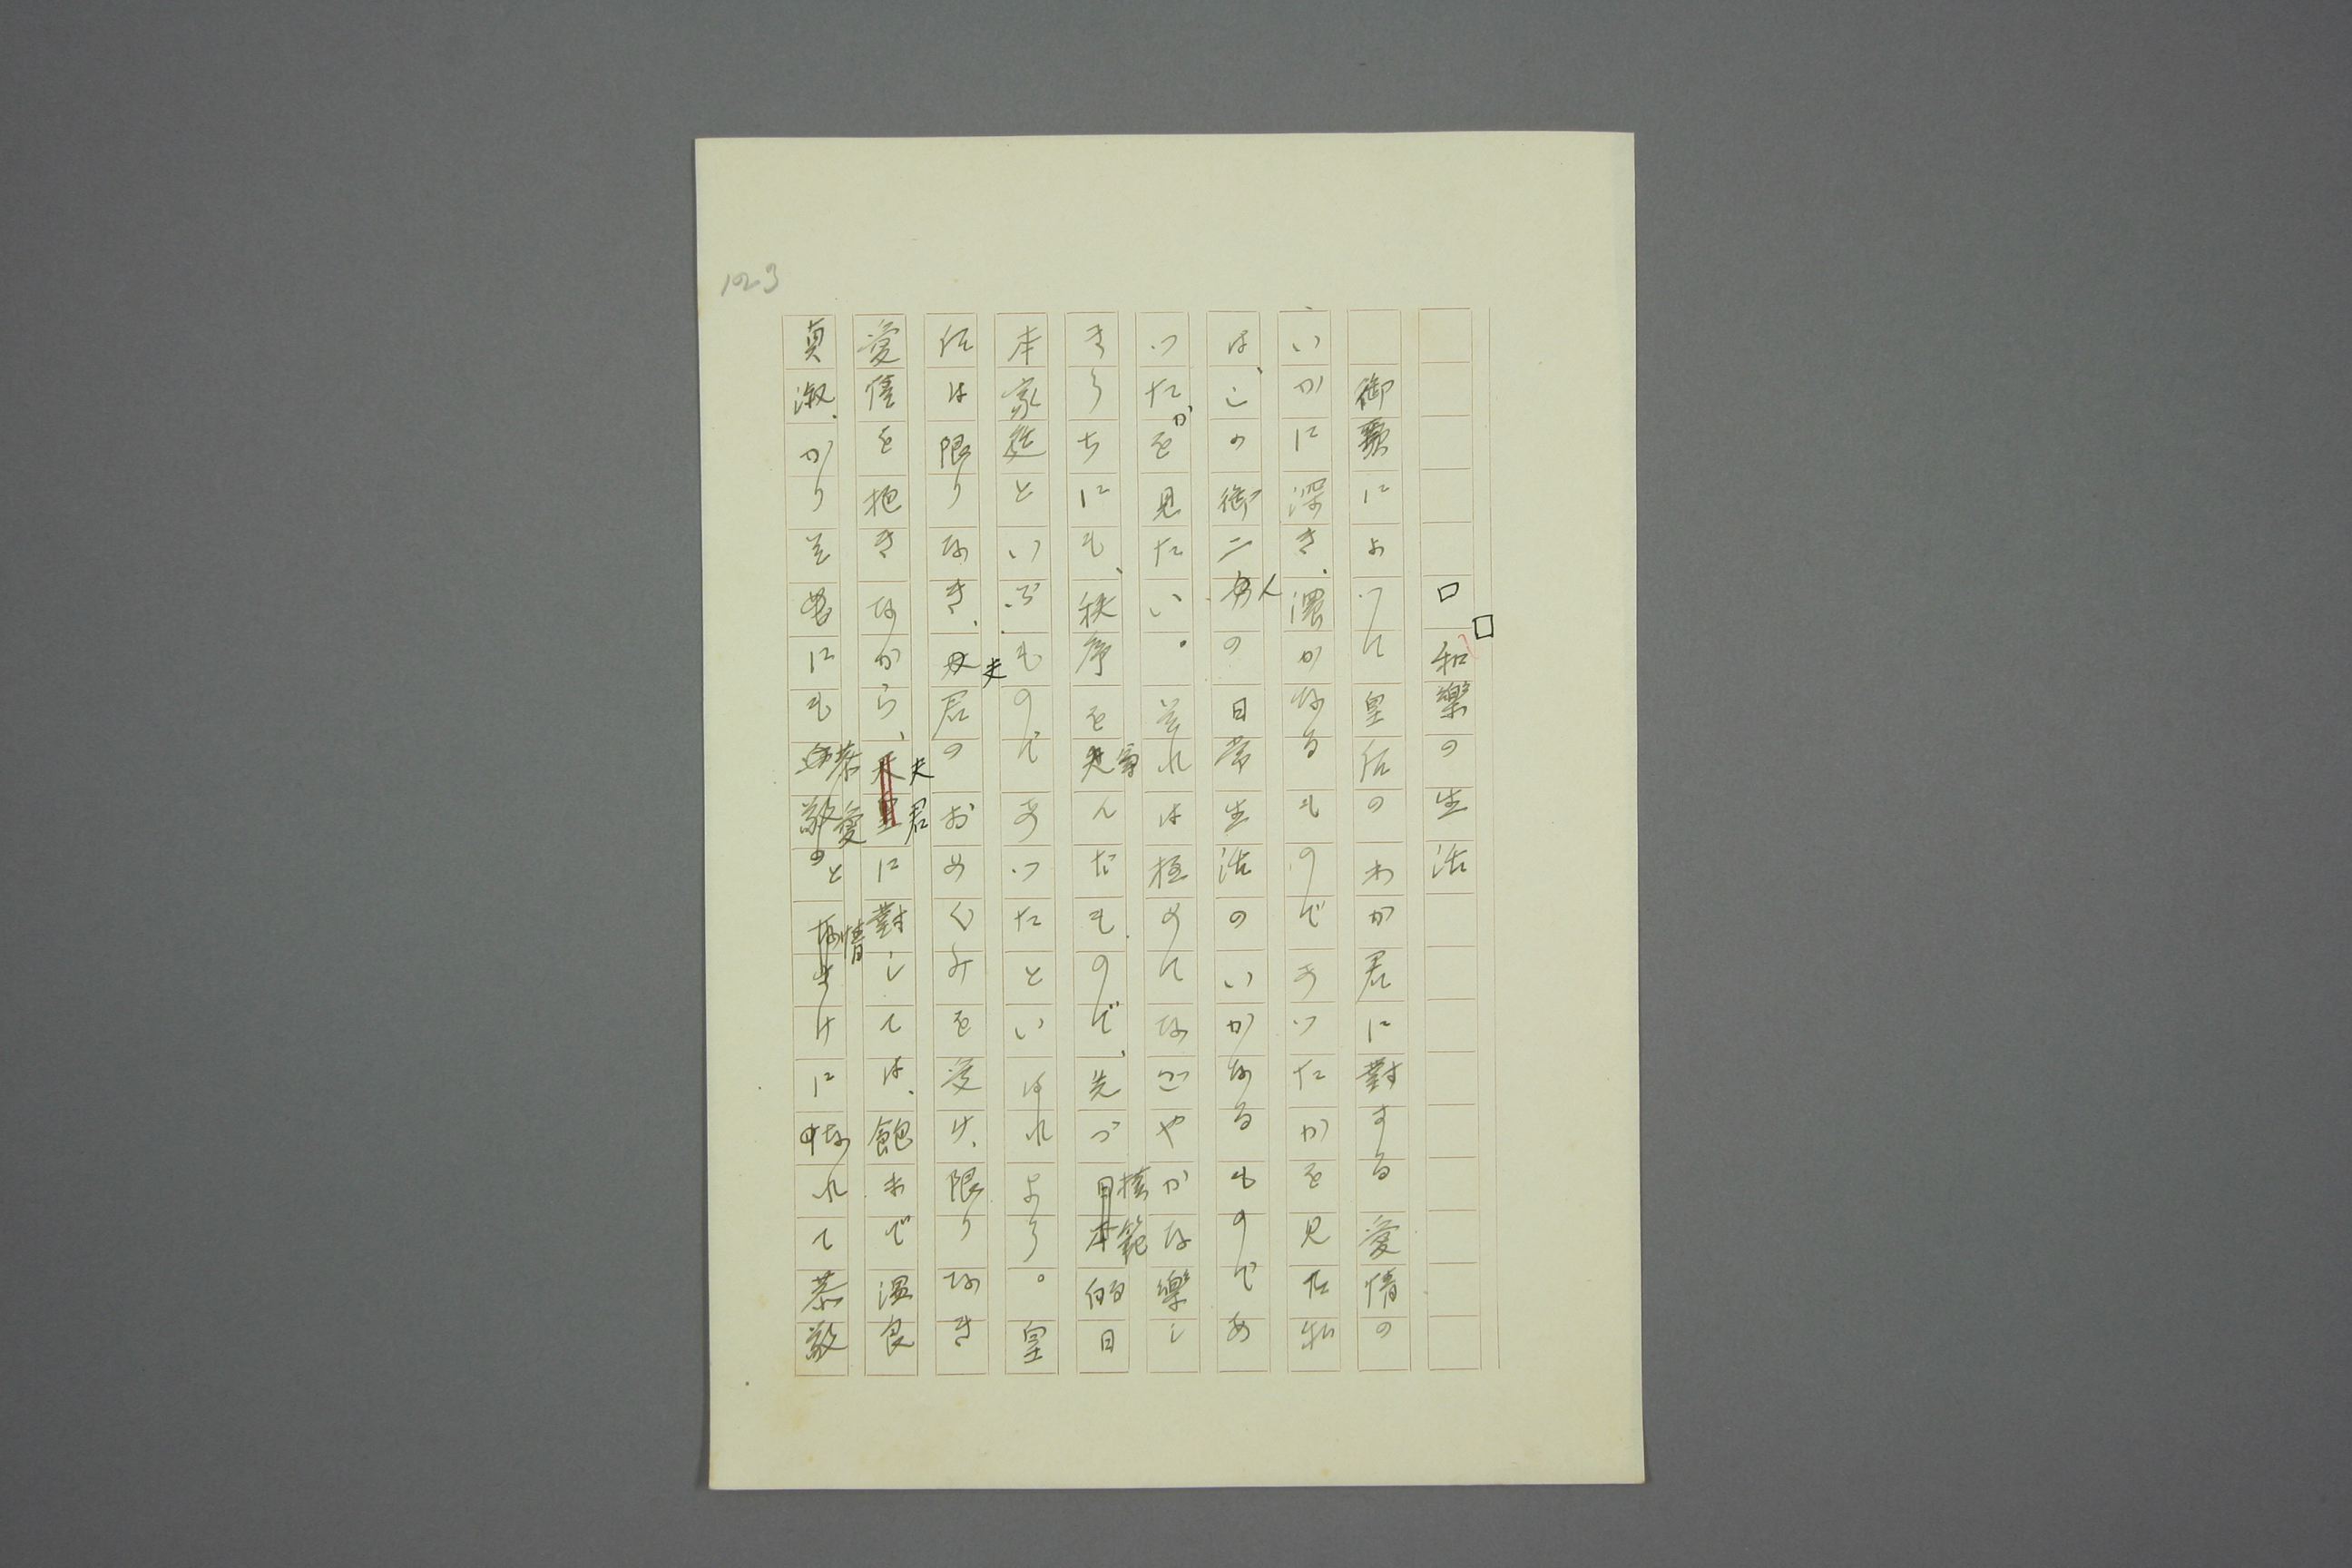 123
和樂の生活
御歌によつて皇后のわが君に對する愛情の
いかに深き、濃かなるものであつたかを見た私
は、この御二人の日常生活のいかなるものであ
つたかを見たい。それは極めてなごやかな樂し
きうちにも、秩序を重んだもので、先づ模範的日
本家庭といふものであつたといはれよう。皇
后は限りなき、夫君のおめぐみを受け、限りなき
愛情を抱きながら、夫君に對しては、飽まで温良
貞淑、かりそめにも恭敬愛と情に
れて恭敬